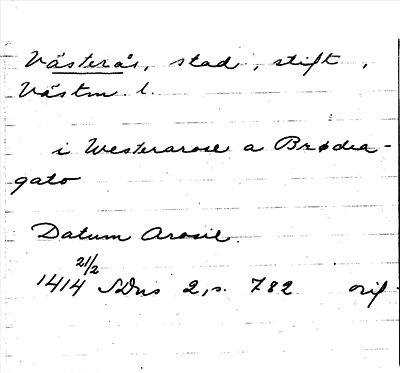 Västerås, stad, stift,
Västm l.
i Westerarose a Brødra-
gato
Datum Arosie.
1414 21/2 SDns 2, s. 782 orig.